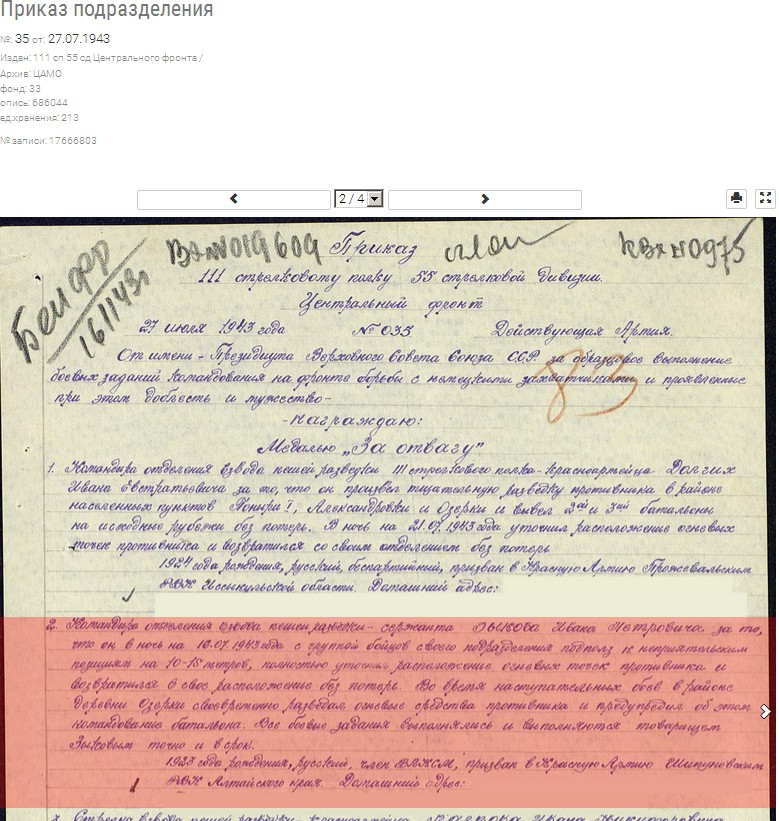 Приказ подразделения
№: 35 от: 27.07.1943
Издан: 111 сп 55 сд Центрального фронта /
Архив: ЦАМО
фонд: 33
опись: 686044
ед.хранения: 213
№ записи: 17666803
2 / 4
Вх №019609 Приказ
КВх №0975
111 стрелковому полку 55 стрелковой дивизии.
Центральный фронт
27 июля 1943 года № 035 Действующая Армия.
От имени - Президиума Верховного Совета Союза ССР. за образцовое выполнение
боевых заданий командования на фронте борьбы с немецкими захватчиками и проявленные
при этом доблесть и мужество-
-Награждаю:
Медалью „За отвагу"
1. Командира отделения взвода пешей разведки 111 стрелкового полка-красноармейца Долгих
Ивана Евстратьевича за то, что он произвел тщательную разведку противника в районе
населенных пунктов Поныри I, Александровки и Озерки и вывел 2ой и 3ий батальоны
на исходные рубежи без потерь. В ночь на 21.07.1943 года уточнил расположение огневых
точек противника и возвратился со своим отделением без потерь
1924 года рождения, русский, беспартийный, призван в Красную Армию Пржевальским
РВК Иссыкульской области. Домашний адрес:
2. Командира отделения взвода пешей разведки - сержанта Зыкова Ивана Петровича за то,
что он в ночь на 10.07.1943 года с группой бойцов своего подразделения подполз к неприятельским
позициям на 10-15 метров, полностью уточнил расположение огневых точек противника и
возвратился в свое расположение без потерь. Во время наступательных боев в районе
деревни Озерки своевременно разведал огневые средства противника и предупредил об этом
командование батальона. Все боевые задания выполнялись и выполняются товарищем
Зыковым точно и в срок.
1923 года рождения, русский, член ВЛКСМ, призван в Красную Армию Шипуновским
РВК Алтайского края. Домашний адрес:
3. Стрелка взвода пешей разведки, красноармейца Ивана Никифоровича